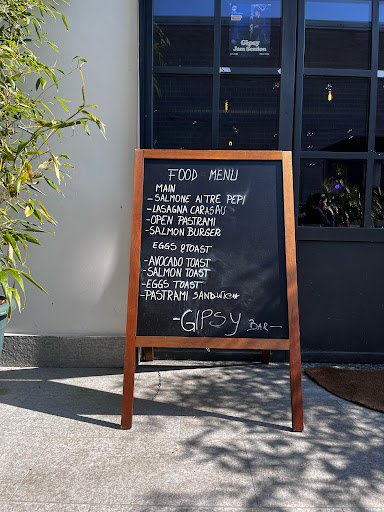 Gipsy
Jam Session
FOOD MENU
MAIN
- SALMONE AI TRE PEPI
- LASAGNA CARASAU
- OPEN PASTRAMI
- SALMON BURGER
EGGS & TOAST
- AVOCADO TOAST
- SALMON TOAST
- EGGS TOAST
- PASTRAMI SANDWICH
- GIPSY BAR -